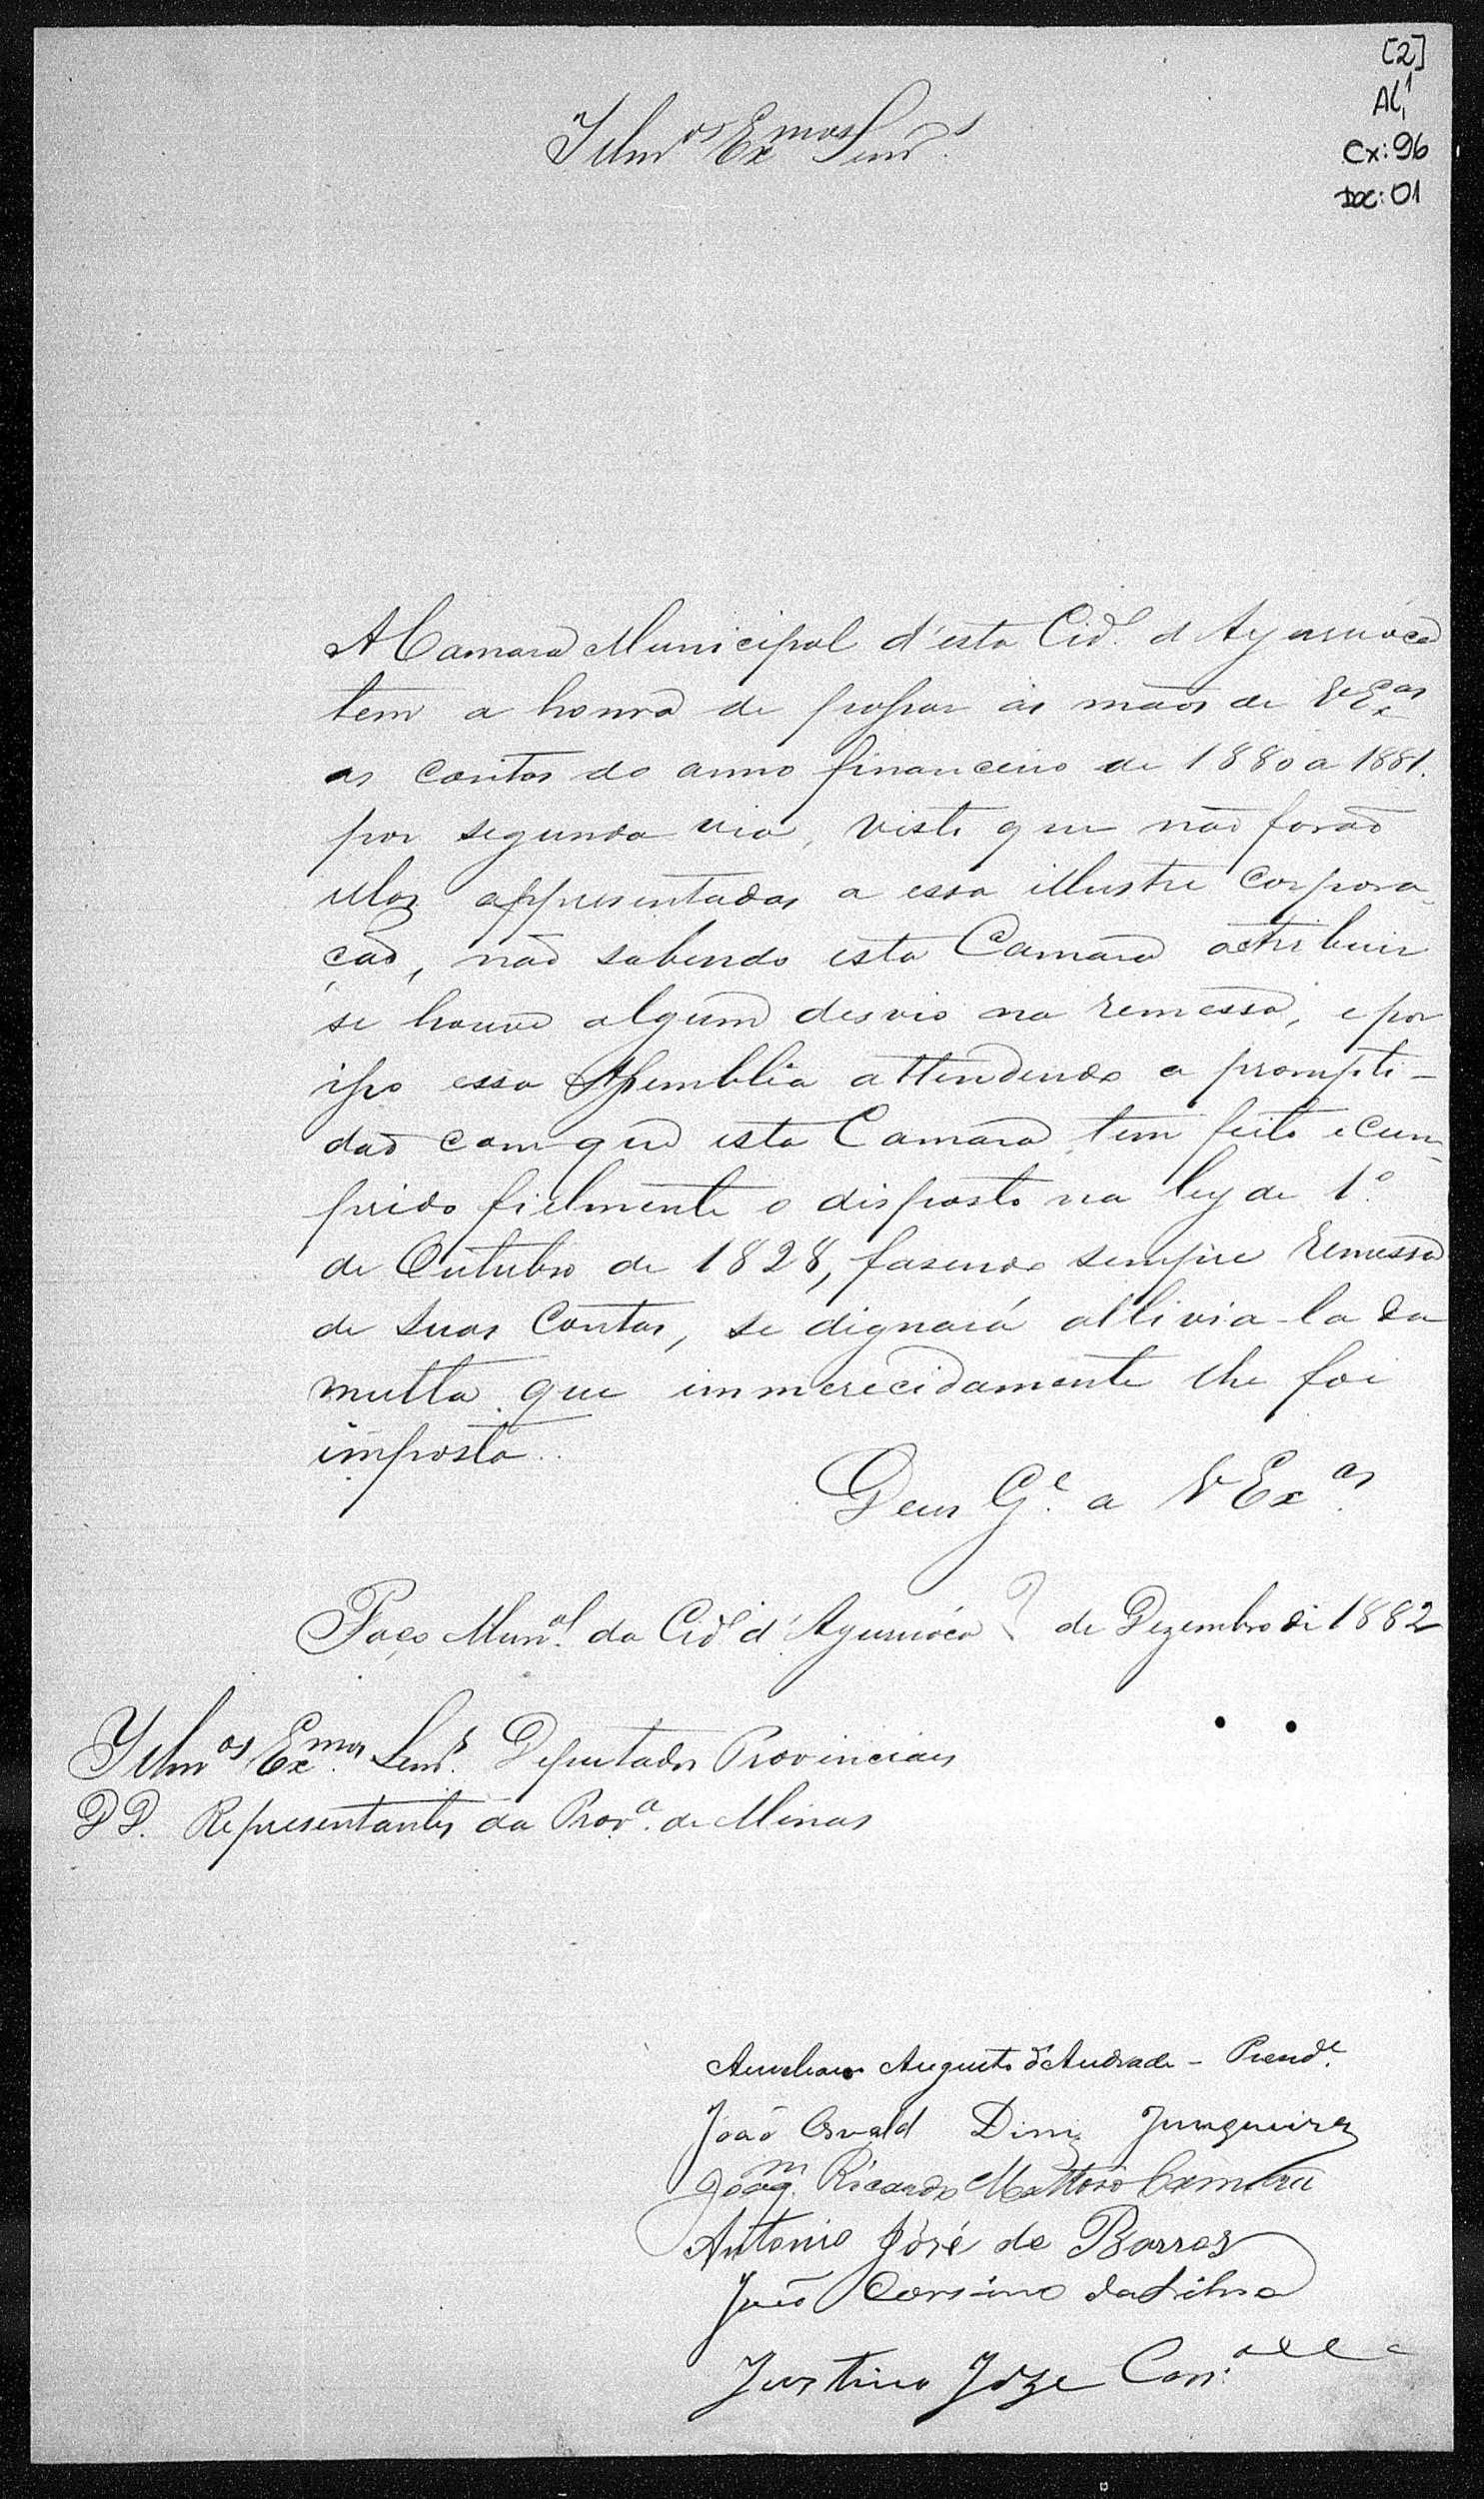 [2]
AL1
Cx: 96
Doc: 01
Illmos Exmos Senrs.
A Camara Municipal d'esta Cide. d'Ayuruóca
tem a honra de passar ás mãos de VExas
as contas do anno financeiro de 1880 a 1881.
por segunda via, visto que não forão
ellas appresentadas a essa illustre corpora-
ção, não sabendo esta Camara attribuir
se houve algum desvio na remessa, e por
isso essa Assemblia attendendo a prompti-
dão com que esta Camara tem feito e cum-
prido fielmente o disposto na ley de 1º
de Outubro de 1828, fasendo sempre remessa
de suas contas, se dignará allivia-la da
multa que immerecidamente lhe foi
imposta.
Deus Ge. a VExas.
Paço Munal. da Cide. d'Ayuruóca de Dezembro de 1882
Illmos Exmos. Senrs. Deputados Provinciais
DD. Representantes da Prova. de Minas
Aureliano Augusto d'Andrade - Presde.
João Osvald Diniz Junqueira
Joaqm. Ricardo Mattoso Camara
Antonio José de Barros
João Corsino da Silva
Justino Józe